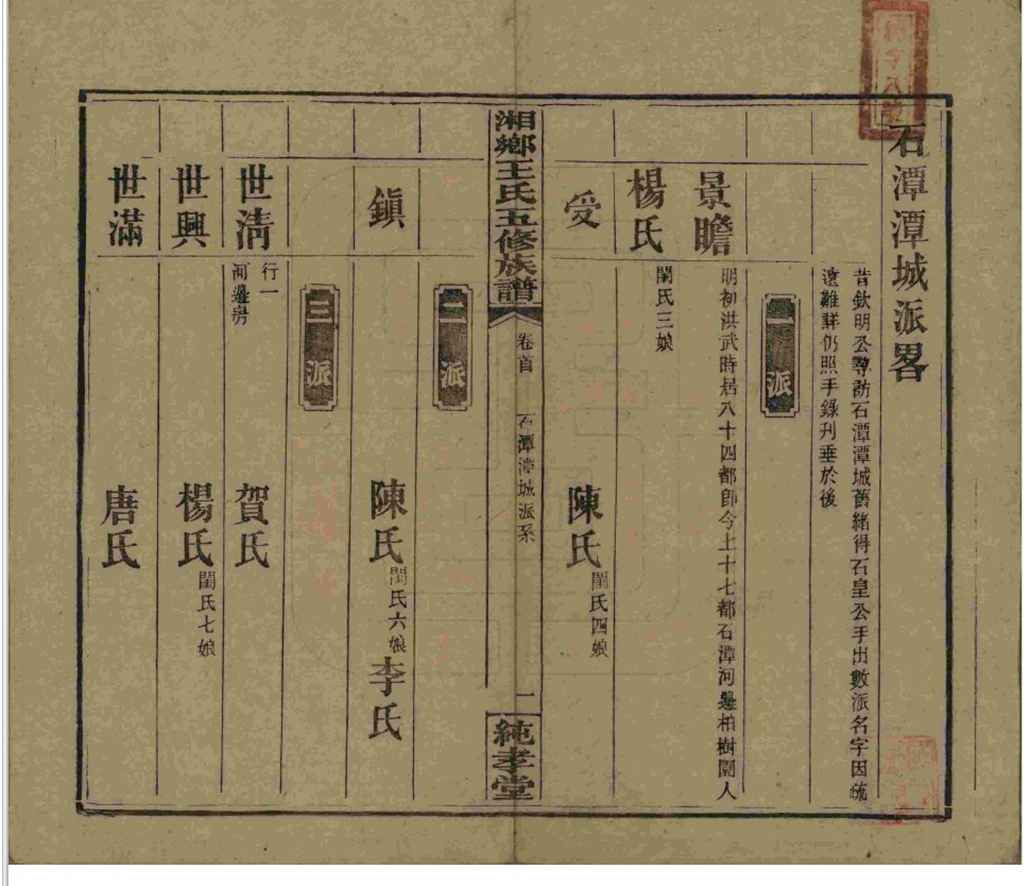 石潭潭城派畧
昔欽明公尋訪石潭潭城舊緒得石皇公手出數派名字因統
遠難詳仍照手錄刋垂於後
一派
景瞻
明初洪武時居八十四都卽今上十七都石潭河邊柏樹園人
楊氏
閨氏三娘
受
陳氏
閨氏四娘
湘鄉王氏五修族譜
卷首
石潭潭城派系
一
純孝堂
二派
鎮
陳氏
閨氏六娘
李氏
三派
世清
行一
河邊房
賀氏
世興
楊氏
閨氏七娘
世滿
唐氏